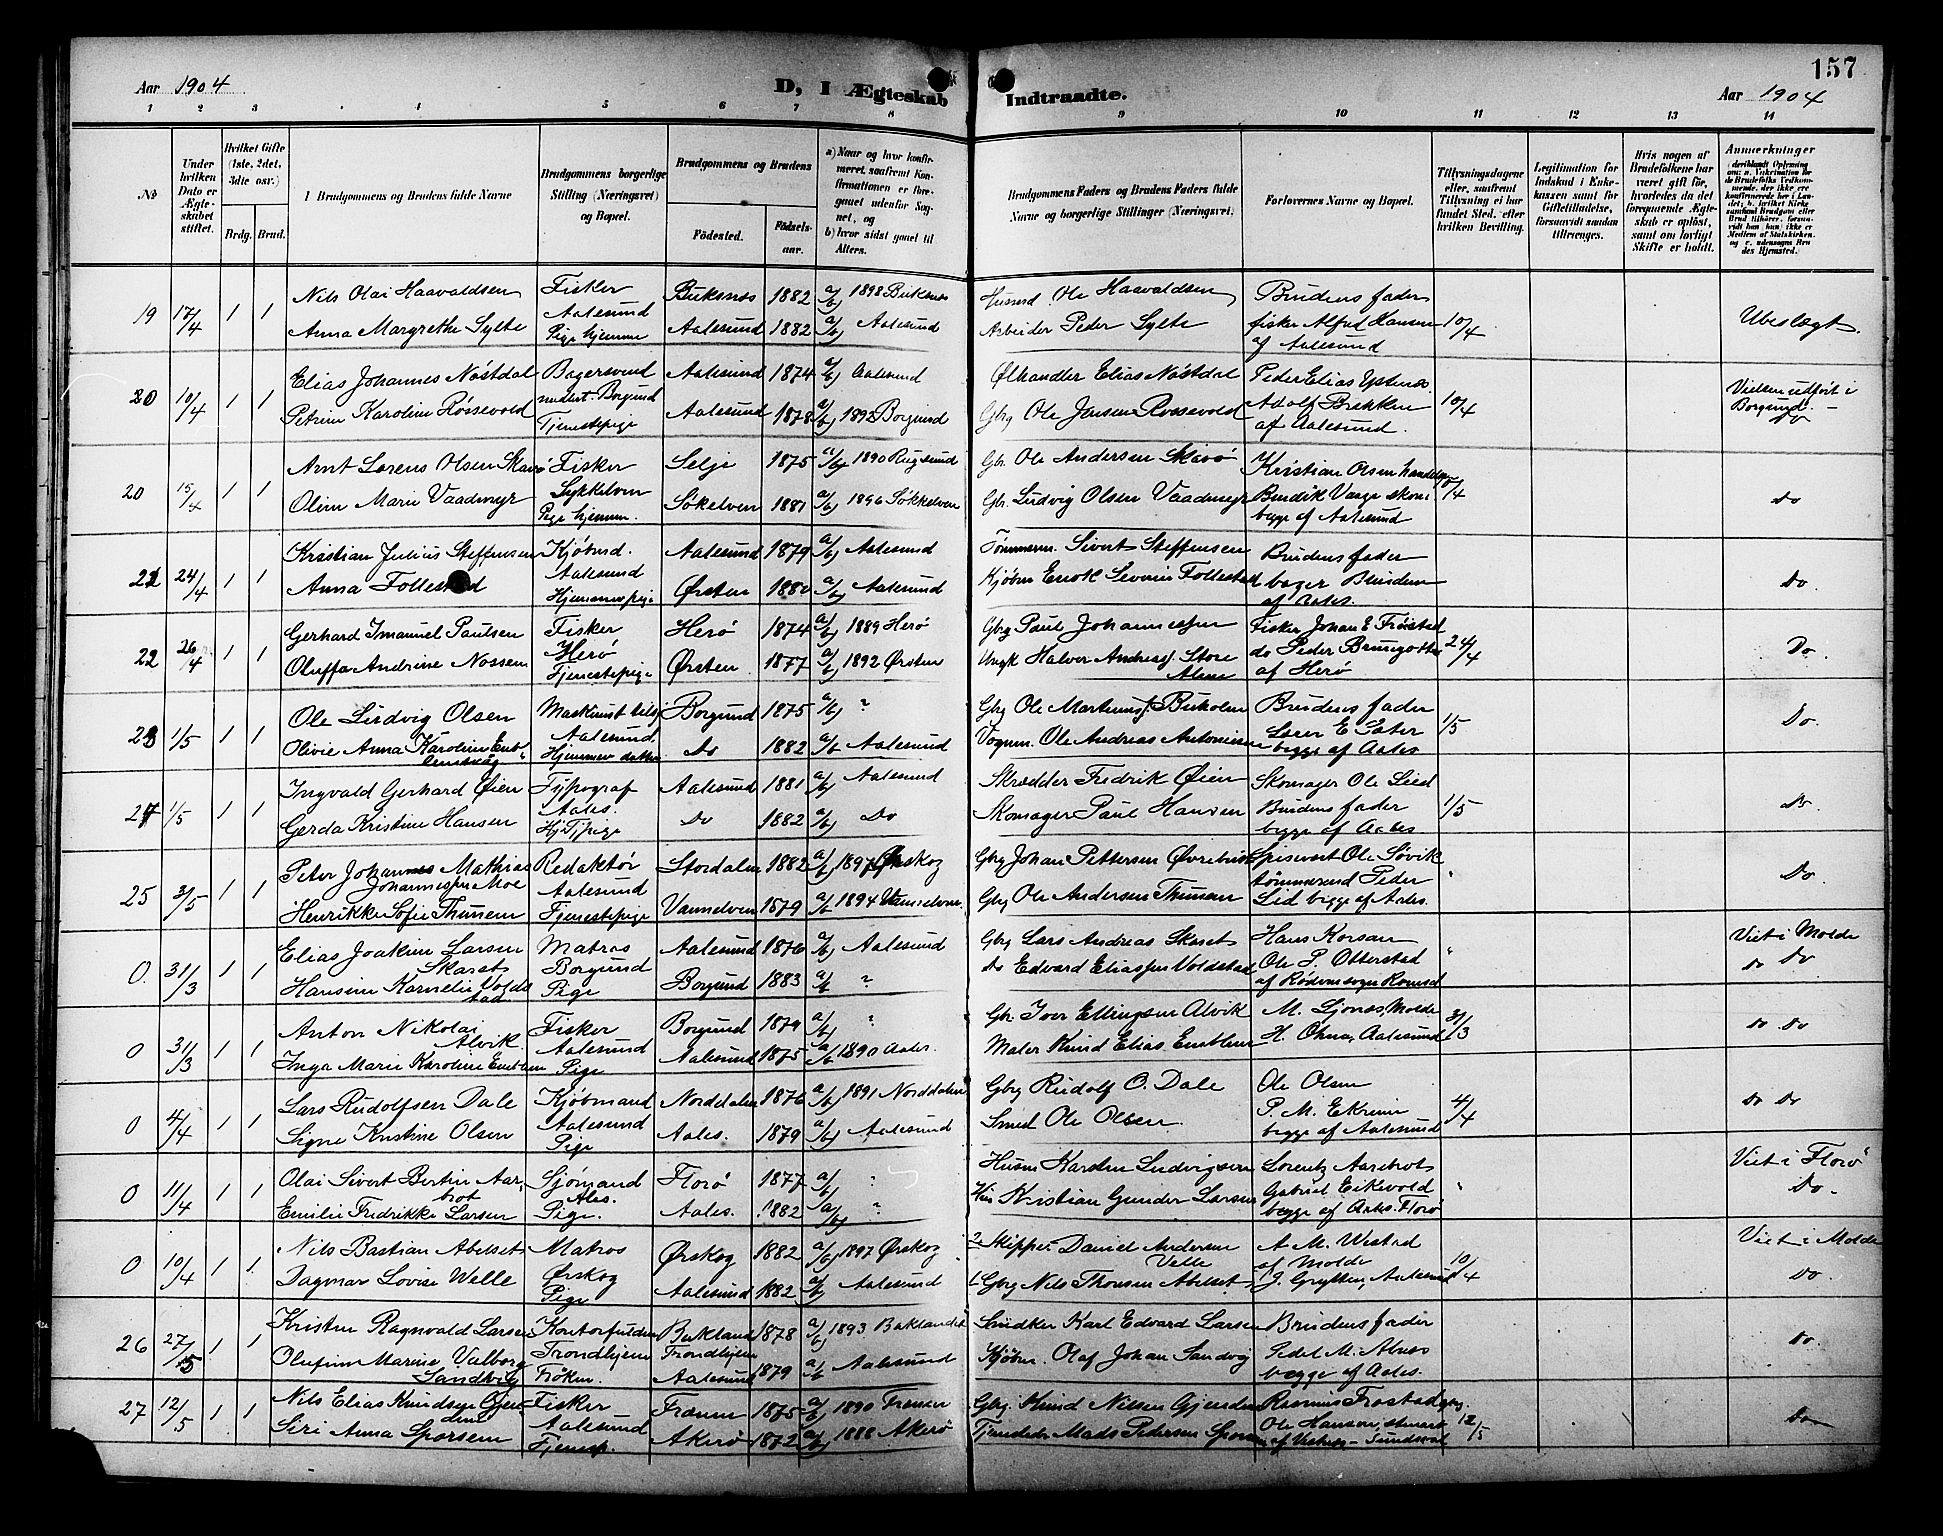 157
Aar 1904
D, I Ægteskab Indtraadte.
Aar 1904
1 2 3 4 5 6 7 8 9 10 11 12 13 14
№
Under hvilken Dato er Ægteskabet stiftet.
Hvilket Gifte (1ste, 2det, 3die osv.)
Brdg. Brud.
Brudgommens og Brudens fulde Navne
Brudgommens borgerlige Stilling (Næringsvei) og Bopæl.
Brudgommens og Brudens
Fødested.
Fødselsaar.
a) Naar og hvor konfirmeret, saafremt Konfirmationen er foregaaet udenfor Sognet, og
b) hvor sidst gaaet til Alters.
Brudgommens Faders og Brudens Faders fulde Navne og borgerlige Stillinger (Næringsvei)
Forlovernes Navne og Bopæl.
Tillysningsdagene eller, saafremt Tillysning ei har fundet Sted, efter hvilken Bevilling.
Legitimation for Indskud i Enkekassen samt for Giftetilladelse, forsaavidt saadan tiltrænges.
Hvis nogen af Brudefolkene har været gift før, hvorledes da det foregaaende Ægteskab er opløst, samt om lovligt Skifte er holdt.
Anmerkninger
19 17/4 1 1
Nils Olai Haavaldsen
Fisker
Buksnes 1882 a/b 1898 Buksnes
Husmd Ole Haavaldsen
Brudens fader
Anna Margrethe Sylte
Aalesund
Pige hjemme
Aalesund 1882 a/b Aalesund
Arbeider Peder Sylte
fisker Alfred Hansen
af Aalesund
10/4
Ubeslægt.
20 10/4 1 1
Elias Johannes Nøstdal
Bagersvend
Aalesund 1874 a/b Aalesund
Ølhandler Elias Nøstdal
Peder Elias Ystenæs
Petrine Karoline Røssevold
Borgund
Tjenestepige
Aalesund 1878 a/b 1892 Borgund
Gbrg Ole Jensen Røssevold
Adolf Brekken
af Aalesund.
10/4
Vielsen udført i
Borgund.
20 15/4 1 1
Arnt Lorens Olsen Skavø
Fisker
Selje 1875 a/b 1890 Rugsund
Gbr. Ole Andersen Skavø
Kristian Olsen
Oline Marie Vaadmyr
Sykkelven
Pige hjemme.
Søkelven 1881 a/b 1896 Søkkelven
Gbr. Ludvig Olsen Vaadmyr
begge af Aalesund
Do
21 24/4 1 1
Kristian Julius Steffensen
Kjøbmd.
Aalesund 1879 a/b Aalesund
Tømmerm. Sivert Steffensen
Brudens fader
Anna Follestad
Aalesund
Ørsten 1880 a/b Aalesund
Kjøbm Enok Severin Follestad
af Aales.
Do
22 26/4 1 1
Gerhard Imanuel Paulsen
Fisker
Herø 1874 a/b 1889 Herø
Gbrg Paul Johannessen
Fisker Johan E Frøistad
Oluffa Andrine Nossen
Herø
Tjenestepige
Ørsten 1877 a/b 1892 Ørsten
Halver Andreas Store
do Peder
af Herø
24/4
Do.
23 1/5 1 1
Ole Ludvig Olsen
Aalesund
Borgund 1875 a/b ?
Gbrg Ole Martinus
Brudens fader
Olivie Anna Karoline
Do 1882 a/b Aalesund
Vognm. Ole Andreas Antonisen
begge af Aales
1/5
Do.
24 1/5 1 1
Ingvald Gerhard Øien
Typograf
Aalesund 1881 a/b Aalesund
Skrædder Fredrik Øien
Skomager Ole Lied
Gerda Kristine Hansen
Aales.
Do 1882 a/b Do
Skomager Paul Hansen
Brudens fader
begge af Aales
1/5
Do.
25 3/5 1 1
Peter Johannes Mathias
Johannessen Moe
Redaktør
Stordalen 1882 a/b 1897 Ørskog
Gbrg Johan Pettersen
Ole Søvik
Henrikke Sofie Thunem
Aalesund
Tjenestepige
Vannelven 1879 a/b 1894 Vannelven
Gbrg Ole Andersen Thunem
Peder
Lid begge af Aales.
Do.
0. 31/3 1 1
Elias Joakim Larsen
Skaret
Matros
Aalesund 1876 a/b Aalesund
Gbrg Lars Andreas Skaret
Hans Korsan
Hansine Kornelie Voldstad
Borgund
Pige
Borgund 1883 a/b ?
Do Edvard Eliassen Voldstad
Ole P. Otterstad
Viet i Molde
do Do
0 31/3 1 1
Anton Nikolai
Alvik.
Fisker
Borgund 1879 a/b ?
Gbr. Iver Ellingsen Alvik
M. Ljønes, Molde
Inga Marie Karoline Emblem
Aalesund
Pige
Aalesund 1875 a/b 1890 Aales.
Maler Knud Elias Emblem
Aalesund
31/3
do do
0 4/4 1 1
Lars Rudolfsen Dale
Kjøbmand
Norddalen 1876 a/b 1891 Norddalen
Gbrg Rudolf O. Dale
Ole Olsen
Signe Kristine Olsen
Aalesund
Pige
Aales. 1879 a/b Aalesund
Smed Ole Olsen.
P. M. Ekrem
begge af Aalesund
4/4
do do
0 11/4 1 1
Olai Sivert Bertin Aarebrot
Sjømand
Florø 1877 a/b ?
Husm Karsten Ludvigsen
Lorentz Aarebrot
Emilie Fredrikke Larsen
Aales.
Pige.
Aales. 1882 a/b ?
Kristian Gunder Larsen
Gabriel Eikevold
begge af Aales. Florø
Viet i Florø
Do.
0 10/4 1 1
Nils Bastian Abelset
Matros
Ørskog 1882 a/b 1897 Ørskog
2 Skipper Daniel Andersen
Velle
A. M. Westad
af Molde
Dagmar Lovise Welle
Ørskog
Pige
Aalesund 1882 a/b Aalesund
1 Gbrg Nils Thomsen Abelset
J. Grytten, Aalesund
10/4
Viet i Molde
Do.
26 27/5 1 1
Kristen Ragnvald Larsen
Trondhjem
Bakland
Trondhjem 1878 a/b 1893 Baklandet
Snedker Karl Edvard Larsen
Brudens fader
Olufine Marine Valborg
Sandvig
Frøken.
Aalesund 1879 a/b Aalesund
Kjøbm. Olaf Johan Sandvig
begge af Aales.
do.
27 12/5 1 1
Nils Elias Knudsen Gjendem
Fisker
Frænen 1875 a/b 1890 Frænen
Gbrg. Knud Nilsen Gjendem
Rasmus Frostad
Siri Anna Sporsem
Aalesund
Tjenesp.
Akerø 1872 a/b 1888 Akerø
Mads Pedersen Sporsem
Ole Hansen
12/5
Do